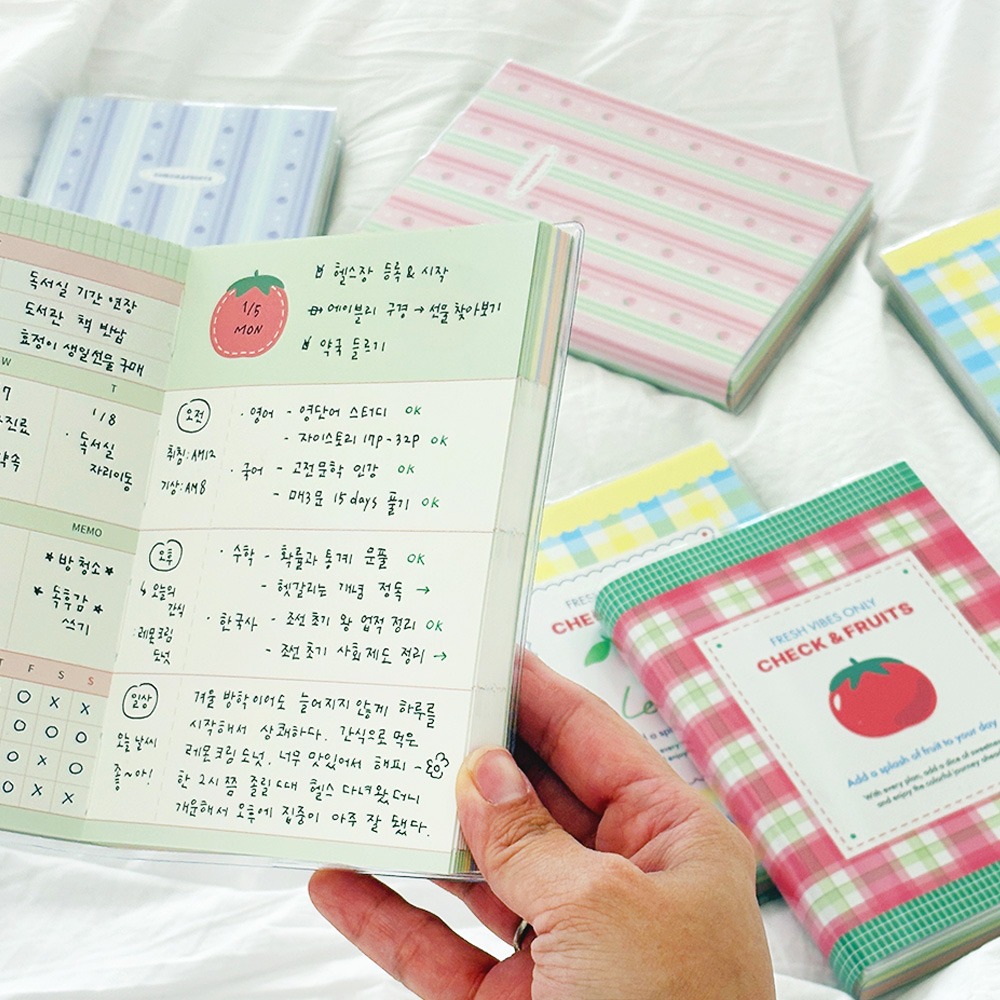 독서실 기간 연장
도서관 책 반납
효정이 생일선물 구매
W T
7 1/8
진료 · 독서실
약속 자리이동
MEMO
*방 청소*
*독후감*
쓰기
T F S S
O X X
O O O
O X O
O X X
1/5
MON
헬스장 등록 & 시작
에이블리 구경 → 선물 찾아보기
약국 들르기
오전
취침:AM12
기상:AM8
· 영어 - 영단어 스터디 OK
- 자이스토리 17p-32p OK
· 국어 - 고전문학 인강 OK
- 매3문 15days 풀기 OK
오후
↳ 오늘의
간식
:레몬크림
도넛
· 수학 - 확률과 통계 문풀 OK
- 헷갈리는 개념 정복 →
· 한국사 - 조선 초기 왕 업적 정리 OK
- 조선 초기 사회 제도 정리 →
일상
오늘 날씨
좋~아!
겨울 방학이어도 늘어지지 않게 하루를
시작해서 상쾌하다. 간식으로 먹은
레몬크림도넛, 너무 맛있어서 해피~
한 2시쯤 졸릴 때 헬스 다녀왔더니
개운해서 오후에 집중이 아주 잘 됐다.
FRES
CHE
Le
FRESH VIBES ONLY
CHECK & FRUITS
Add a splash of fruit to your day
With every plan, add a slice of sweetne
and enjoy the colorful journey ahead